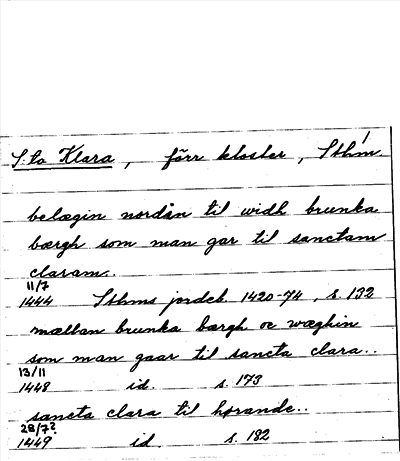 S:ta Klara, förr kloster, Sthm.
belægin nordan til widh brunka
bærgh som man gar til sanctam
claram.
11/7
1444 Sthms jordeb. 1420-74, s. 132
mællan brunka bærgh oc wæghin
som man gaar til sancta clara..
13/11
1448 id. s. 173
sancta clara til hørande..
28/7?
1449 id. s. 182